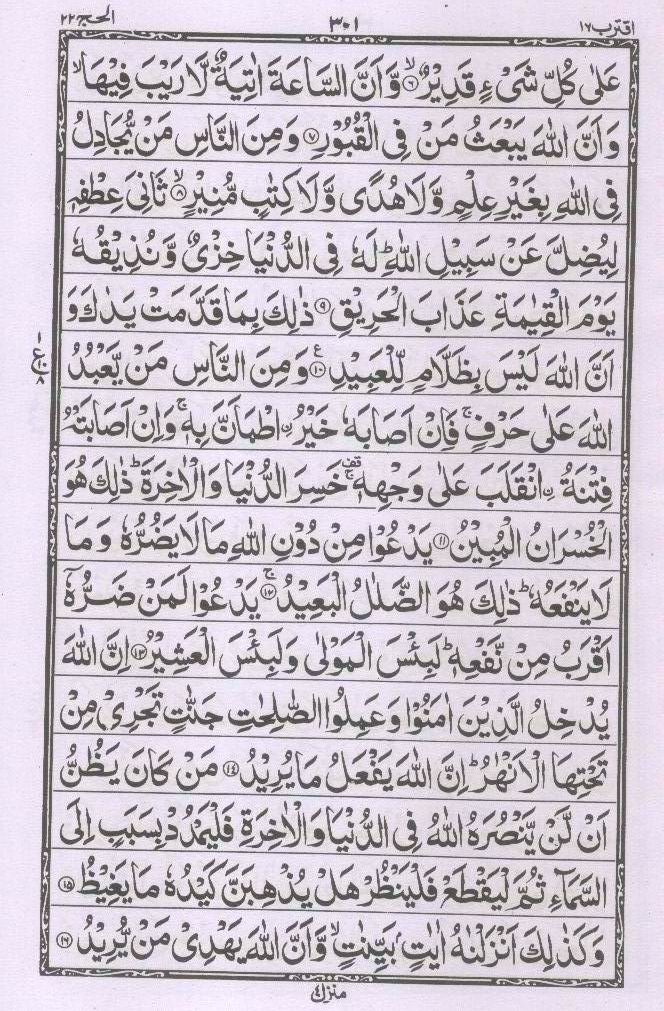 اقترب ١٧
٣٠١
الحج ٢٢
عَلٰى كُلِّ شَىْءٍ قَدِيْرٌ ۙ﴿٦﴾ وَّاَنَّ السَّاعَةَ اٰتِيَةٌ لَّا رَيْبَ فِيْهَا ۙ
وَاَنَّ اللّٰهَ يَبْعَثُ مَنْ فِى الْقُبُوْرِ ﴿٧﴾ وَمِنَ النَّاسِ مَنْ يُّجَادِلُ
فِى اللّٰهِ بِغَيْرِ عِلْمٍ وَّلَا هُدًى وَّلَا كِتٰبٍ مُّنِيْرٍ ۙ﴿٨﴾ ثَانِىَ عِطْفِهٖ
لِيُضِلَّ عَنْ سَبِيْلِ اللّٰهِ ؕ لَهٗ فِى الدُّنْيَا خِزْىٌ وَّنُذِيْقُهٗ
يَوْمَ الْقِيٰمَةِ عَذَابَ الْحَرِيْقِ ﴿٩﴾ ذٰلِكَ بِمَا قَدَّمَتْ يَدٰكَ وَ
اَنَّ اللّٰهَ لَيْسَ بِظَلَّامٍ لِّلْعَبِيْدِ ﴿١٠﴾ ع وَمِنَ النَّاسِ مَنْ يَّعْبُدُ
اللّٰهَ عَلٰى حَرْفٍ ۚ فَاِنْ اَصَابَهٗ خَيْرُ اۨطْمَاَنَّ بِهٖ ۚ وَاِنْ اَصَابَتْهُ
فِتْنَةُ اۨنْقَلَبَ عَلٰى وَجْهِهٖ ۚقف خَسِرَ الدُّنْيَا وَالْاٰخِرَةَ ؕ ذٰلِكَ هُوَ
الْخُسْرَانُ الْمُبِيْنُ ﴿١١﴾ يَدْعُوْا مِنْ دُوْنِ اللّٰهِ مَا لَا يَضُرُّهٗ وَمَا
لَا يَنْفَعُهٗ ؕ ذٰلِكَ هُوَ الضَّلٰلُ الْبَعِيْدُ ۚ﴿١٢﴾ يَدْعُوْا لَمَنْ ضَرُّهٗۤ
اَقْرَبُ مِنْ نَّفْعِهٖ ؕ لَبِئْسَ الْمَوْلٰى وَلَبِئْسَ الْعَشِيْرُ ﴿١٣﴾ اِنَّ اللّٰهَ
يُدْخِلُ الَّذِيْنَ اٰمَنُوْا وَعَمِلُوا الصّٰلِحٰتِ جَنّٰتٍ تَجْرِىْ مِنْ
تَحْتِهَا الْاَنْهٰرُ ؕ اِنَّ اللّٰهَ يَفْعَلُ مَا يُرِيْدُ ﴿١٤﴾ مَنْ كَانَ يَظُنُّ
اَنْ لَّنْ يَّنْصُرَهُ اللّٰهُ فِى الدُّنْيَا وَالْاٰخِرَةِ فَلْيَمْدُدْ بِسَبَبٍ اِلَى
السَّمَآءِ ثُمَّ لْيَقْطَعْ فَلْيَنْظُرْ هَلْ يُذْهِبَنَّ كَيْدُهٗ مَا يَغِيْظُ ﴿١٥﴾
وَكَذٰلِكَ اَنْزَلْنٰهُ اٰيٰتٍۭ بَيِّنٰتٍ ۙ وَّاَنَّ اللّٰهَ يَهْدِىْ مَنْ يُّرِيْدُ ﴿١٦﴾
منزل ٤